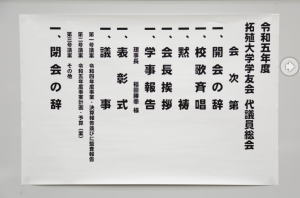 令和五年度
拓殖大学学友会 代議員総会
会次第
一、開会の辞
一、校歌斉唱
一、黙祷
一、会長挨拶
一、学事報告
理事長 福田勝幸 様
一、表彰式
一、議事
第一号議案 令和四年度事業・決算報告並びに監査報告
第二号議案 令和五年度事業計画・予算（案）
第三号議案 その他
一、閉会の辞